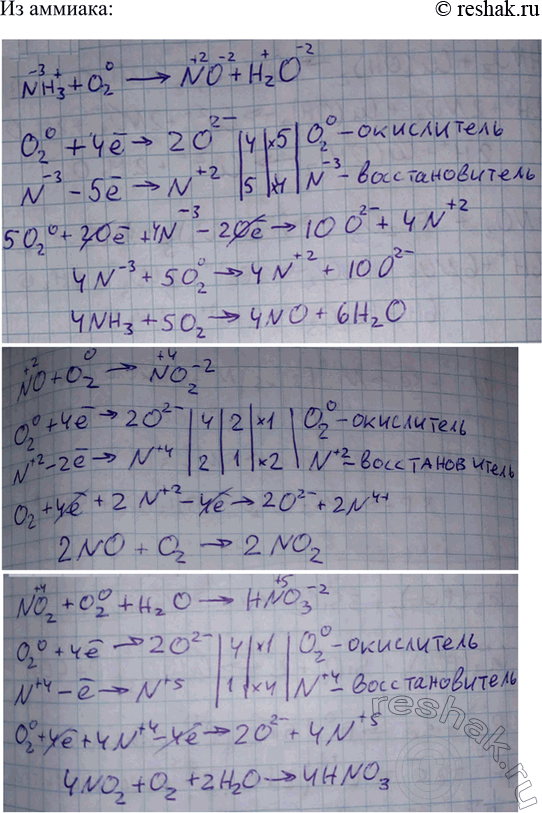 Из аммиака:
© reshak.ru
-3 + 0 +2 -2 + -2
NH₃ + O₂ → NO + H₂O
O₂⁰ + 4ē → 2O²⁻ | 4 | ×5 | O₂⁰ - окислитель
N⁻³ - 5ē → N⁺² | 5 | ×4 | N⁻³ - восстановитель
5O₂⁰ + 20ē + 4N⁻³ - 20ē → 10O²⁻ + 4N⁺²
4N⁻³ + 5O₂⁰ → 4N⁺² + 10O²⁻
4NH₃ + 5O₂ → 4NO + 6H₂O
+2 0 +4 -2
NO + O₂ → NO₂
O₂⁰ + 4ē → 2O²⁻ | 4 | 2 | ×1 | O₂⁰ - окислитель
N⁺² - 2ē → N⁺⁴ | 2 | 1 | ×2 | N⁺² - восстановитель
O₂ + 4ē + 2N⁺² - 4ē → 2O²⁻ + 2N⁴⁺
2NO + O₂ → 2NO₂
+4 0 +5 -2
NO₂ + O₂ + H₂O → HNO₃
O₂⁰ + 4ē → 2O²⁻ | 4 | ×1 | O₂⁰ - окислитель
N⁺⁴ - ē → N⁺⁵ | 1 | ×4 | N⁺⁴ - восстановитель
O₂⁰ + 4ē + 4N⁺⁴ - 4ē → 2O²⁻ + 4N⁺⁵
4NO₂ + O₂ + 2H₂O → 4HNO₃
reshak.ru